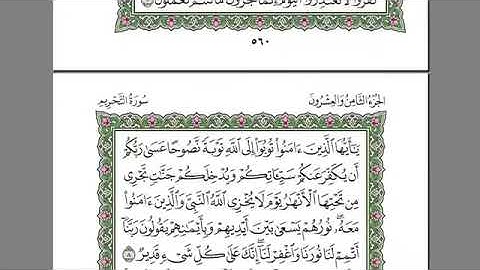 كَفَرُوا۟ لَا تَعْتَذِرُوا۟ ٱلْيَوْمَ إِنَّمَا تُجْزَوْنَ مَا كُنتُمْ تَعْمَلُونَ ٧
٥٦٠
الجُزْءُ الثَّامِنُ وَالعِشْرُونَ سُورَةُ التَّحْرِيمِ
يَٰٓأَيُّهَا ٱلَّذِينَ ءَامَنُوا۟ تُوبُوٓا۟ إِلَى ٱللَّهِ تَوْبَةً نَّصُوحًا عَسَىٰ رَبُّكُمْ
أَن يُكَفِّرَ عَنكُمْ سَيِّـَٔاتِكُمْ وَيُدْخِلَكُمْ جَنَّٰتٍ تَجْرِى
مِن تَحْتِهَا ٱلْأَنْهَٰرُ يَوْمَ لَا يُخْزِى ٱللَّهُ ٱلنَّبِىَّ وَٱلَّذِينَ ءَامَنُوا۟
مَعَهُۥ ۖ نُورُهُمْ يَسْعَىٰ بَيْنَ أَيْدِيهِمْ وَبِأَيْمَٰنِهِمْ يَقُولُونَ رَبَّنَآ
أَتْمِمْ لَنَا نُورَنَا وَٱغْفِرْ لَنَآ ۖ إِنَّكَ عَلَىٰ كُلِّ شَىْءٍ قَدِيرٌ ٨